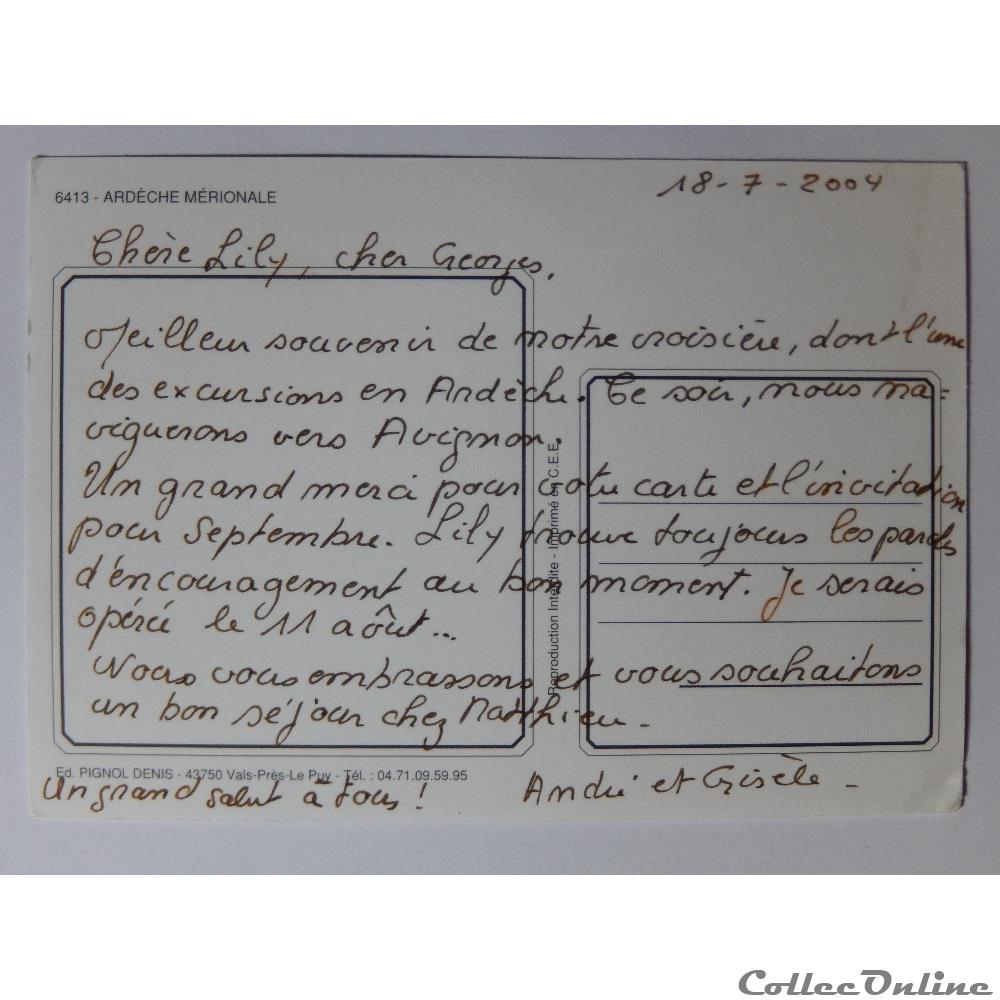 18-7-2004
6413 - ARDÈCHE MÉRIONALE
Chère Lily, cher Georges,
Meilleur souvenir de notre croisière, dont l'une
des excursions en Ardèche. Ce soir, nous na-
viguerons vers Avignon.
Un grand merci pour votre carte et l'invitation
pour Septembre. Lily trouve toujours les paroles
d'encouragement au bon moment. Je serais
opéré le 11 août...
Nous vous embrassons et vous souhaitons
un bon séjour chez Matthieu.
Reproduction Interdite - Imprimé en C.E.E.
Ed. PIGNOL DENIS - 43750 Vals-Près-Le Puy - Tél. : 04.71.09.59.95
Un grand salut à tous !
André et Gisèle -
CollecOnline